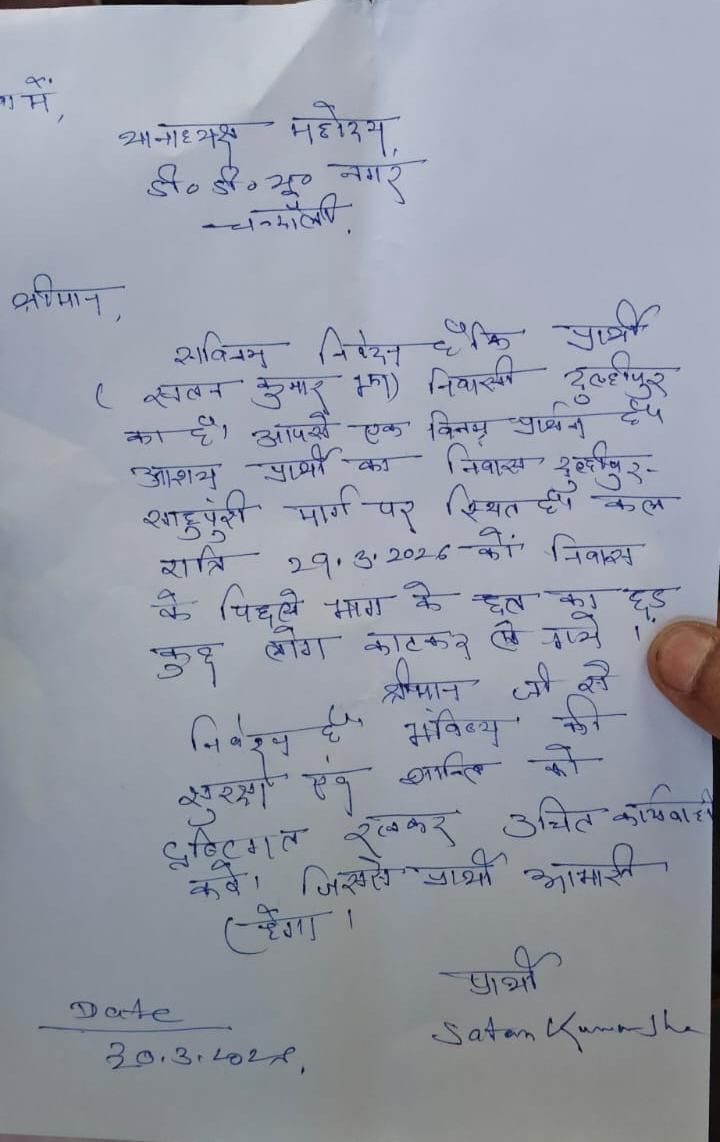 में,
थानाध्यक्ष महोदय,
डी० डी० यू० नगर
चन्दौली.
श्रीमान,
सविनय निवेदन है कि प्रार्थी
( सतन कुमार झा) निवासी दुल्हीपुर
का है। आपसे एक विनम्र प्रार्थना है
आशय प्रार्थी का निवास दुल्हीपुर-
साहुपुरी मार्ग पर स्थित है कल
रात्रि 29.3.2026 कों निवास
के पिछले भाग के छत का छड़
कुछ लोग काटकर ले गये ।
श्रीमान जी से
निवेदन है भविष्य की
सुरक्षा एंव शान्ति को
दृष्टिगत रखकर उचित कार्यवाही
करें। जिससे प्रार्थी आभारी
रहेगा ।
प्रार्थी
Satan Kumar Jha
Date
30.3.2026.